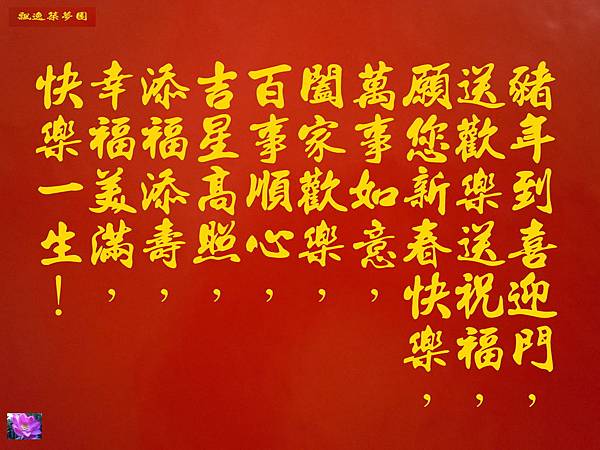 飄逸築夢園
豬年到喜迎門，
送歡樂送祝福，
願您新春快樂，
萬事如意，
闔家歡樂，
百事順心，
吉星高照，
添福添壽，
幸福美滿，
快樂一生！